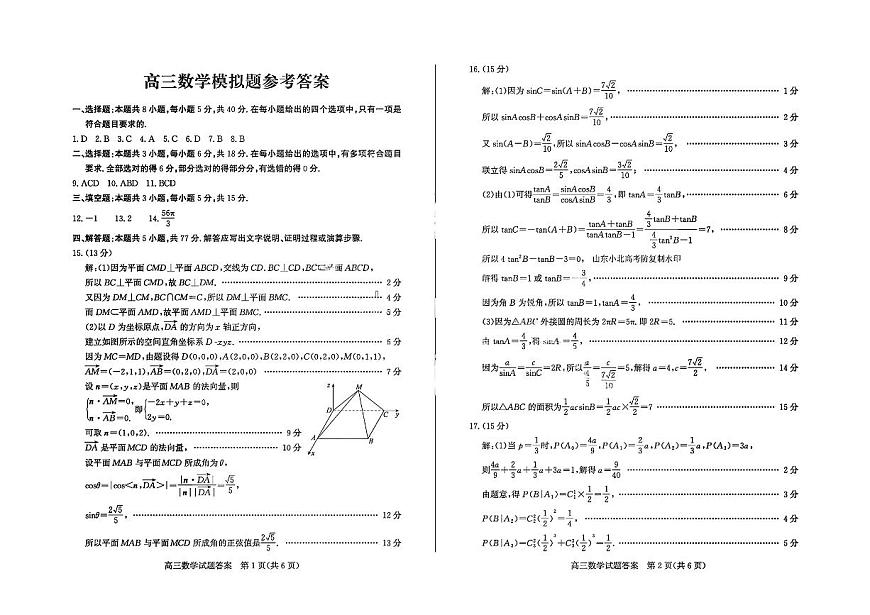 高三数学模拟题参考答案
一、选择题:本题共8小题,每小题5分,共40分.在每小题给出的四个选项中,只有一项是
符合题目要求的.
1.D 2.B 3.C 4.A 5.C 6.D 7.B 8.B
二、选择题:本题共3小题,每小题6分,共18分.在每小题给出的选项中,有多项符合题目
要求.全部选对的得6分,部分选对的得部分分,有选错的得0分.
9.ACD 10.ABD 11.BCD
三、填空题:本题共3小题,每小题5分,共15分.
12.-1 13.2 14.56π/3
四、解答题:本题共5小题,共77分.解答应写出文字说明、证明过程或演算步骤.
15.(13分)
解:(1)因为平面CMD⊥平面ABCD,交线为CD.BC⊥CD,BC⊂平面ABCD,
所以BC⊥平面CMD,故BC⊥DM. …… 2分
又因为DM⊥CM,BC∩CM=C,所以DM⊥平面BMC. …… 4分
而DM⊂平面AMD,故平面AMD⊥平面BMC. …… 5分
(2)以D为坐标原点,DA的方向为x轴正方向,
建立如图所示的空间直角坐标系D-xyz. …… 6分
因为MC=MD,由题设得D(0,0,0),A(2,0,0),B(2,2,0),C(0,2,0),M(0,1,1),
AM=(-2,1,1),AB=(0,2,0),DA=(2,0,0) …… 7分
设n=(x,y,z)是平面MAB的法向量,则
{n·AM=0, n·AB=0. 即{-2x+y+z=0, 2y=0.
可取n=(1,0,2). …… 9分
DA是平面MCD的法向量, …… 10分
设平面MAB与平面MCD所成角为θ,
cosθ=|cos<n,DA>|=|n·DA|/|n||DA|=√5/5,
sinθ=2√5/5, …… 12分
所以平面MAB与平面MCD所成角的正弦值是2√5/5. …… 13分
z
M
D
C
y
A
B
x
高三数学试题答案 第1页(共6页)
16.(15分)
解:(1)因为sinC=sin(A+B)=7√2/10, …… 1分
所以sinAcosB+cosAsinB=7√2/10, …… 2分
又sin(A-B)=√2/10,所以sinAcosB-cosAsinB=√2/10, …… 3分
联立得sinAcosB=2√2/5,cosAsinB=3√2/10; …… 4分
(2)由(1)可得tanA/tanB=sinAcosB/cosAsinB=4/3,即tanA=4/3tanB, …… 6分
所以tanC=-tan(A+B)=(tanA+tanB)/(tanAtanB-1)=(4/3tanB+tanB)/(4/3tan²B-1)=7, …… 8分
所以4tan²B-tanB-3=0, 山东小北高考防复制水印
解得tanB=1或tanB=-3/4, …… 9分
因为角B为锐角,所以tanB=1,tanA=4/3. …… 10分
(3)因为△ABC外接圆的周长为2πR=5π.即2R=5. …… 11分
由tanA=4/3,得sinA=4/5, …… 12分
因为a/sinA=c/sinC=2R,所以a/(4/5)=c/(7√2/10)=5,解得a=4,c=7√2/2, …… 14分
所以△ABC的面积为1/2acsinB=1/2ac×√2/2=7 …… 15分
17.(15分)
解:(1)当p=1/3时,P(A₀)=4a/9,P(A₁)=2/3a,P(A₂)=1/3a,P(A₃)=3a,
则4a/9+2/3a+1/3a+3a=1,解得a=9/40 …… 2分
由题意,得P(B|A₁)=C₁¹×1/2=1/2, …… 3分
P(B|A₂)=C₂²(1/2)²=1/4, …… 4分
P(B|A₃)=C₃²(1/2)³+C₃³(1/2)³=1/2. …… 5分
高三数学试题答案 第2页(共6页)